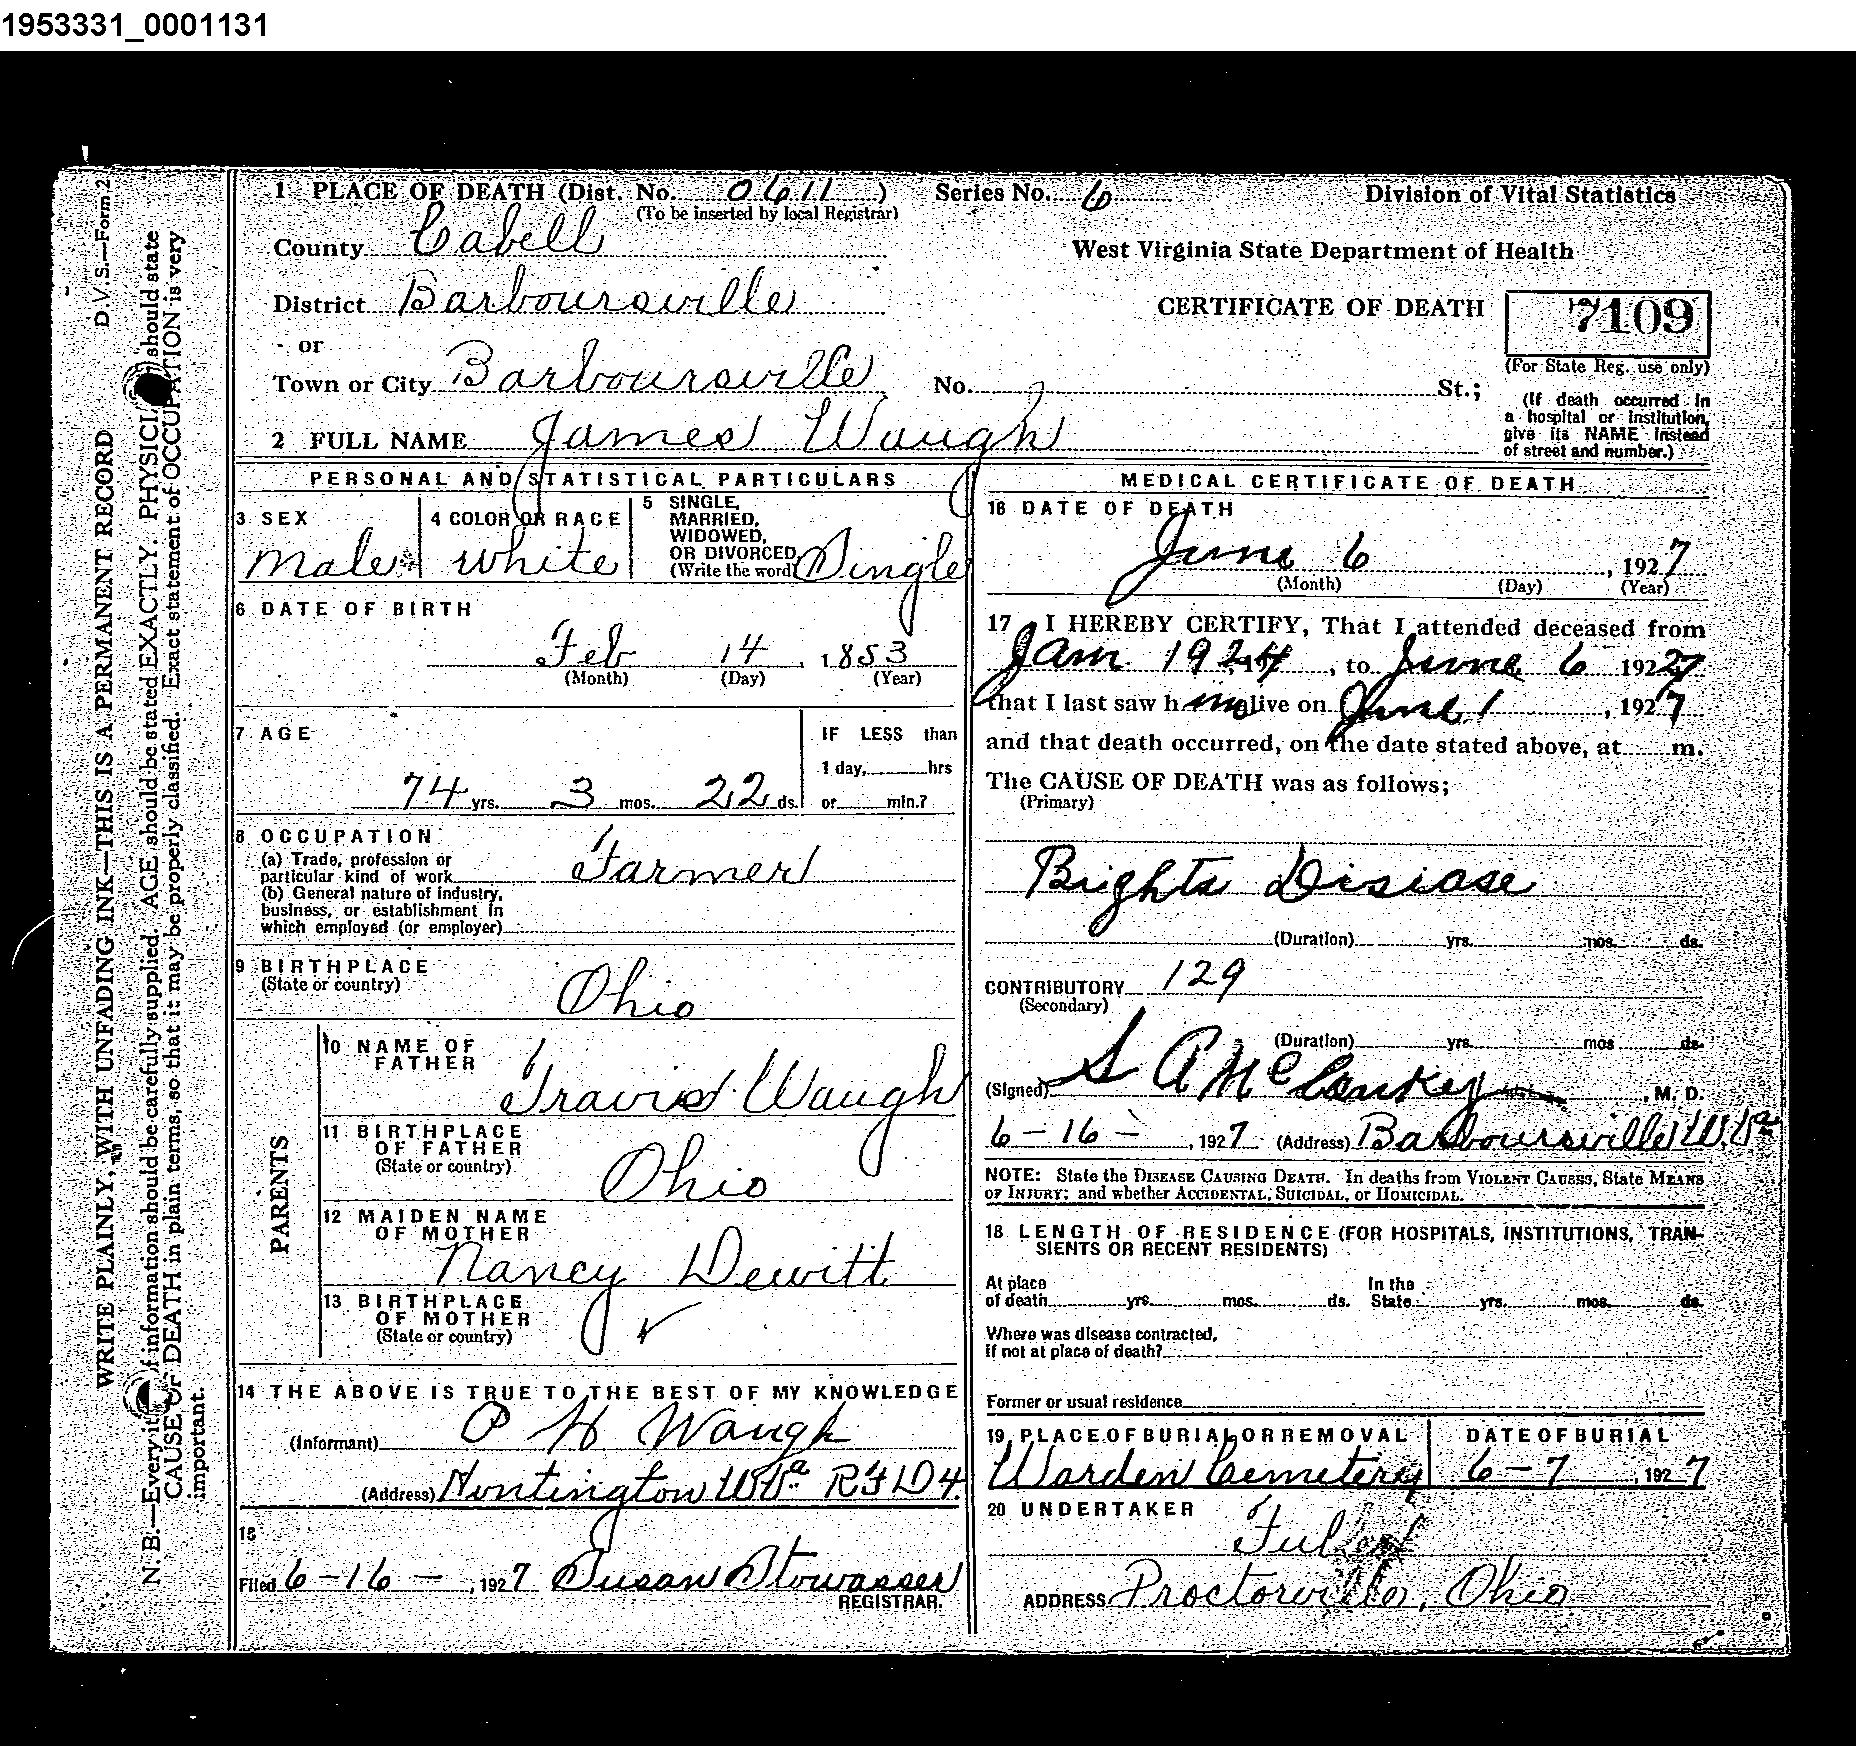 1953331_0001131
D.V.S.—Form 2
WRITE PLAINLY, WITH UNFADING INK—THIS IS A PERMANENT RECORD
N. B.—Every item of information should be carefully supplied. AGE should be stated EXACTLY. PHYSICIANS should state
CAUSE OF DEATH in plain terms, so that it may be properly classified. Exact statement of OCCUPATION is very
important.
1 PLACE OF DEATH (Dist. No. 0611) Series No. 6 Division of Vital Statistics
(To be inserted by local Registrar)
County Cabell West Virginia State Department of Health
District Barboursville CERTIFICATE OF DEATH 7109
or
(For State Reg. use only)
Town or City Barboursville No. St.;
(If death occurred in
a hospital or institution,
give its NAME instead
of street and number.)
2 FULL NAME James Waugh
PERSONAL AND STATISTICAL PARTICULARS
3 SEX
Male
4 COLOR OR RACE
White
5 SINGLE,
MARRIED,
WIDOWED,
OR DIVORCED
(Write the word) Single
6 DATE OF BIRTH
Feb 14, 1853
(Month) (Day) (Year)
7 AGE
74 yrs. 3 mos. 22 ds.
IF LESS than
1 day, hrs
or min.?
8 OCCUPATION
(a) Trade, profession or
particular kind of work Farmer
(b) General nature of industry,
business, or establishment in
which employed (or employer)
9 BIRTHPLACE
(State or country) Ohio
PARENTS
10 NAME OF
FATHER
Travis Waugh
11 BIRTHPLACE
OF FATHER
(State or country) Ohio
12 MAIDEN NAME
OF MOTHER
Nancy Dewitt
13 BIRTHPLACE
OF MOTHER
(State or country) ✓
14 THE ABOVE IS TRUE TO THE BEST OF MY KNOWLEDGE
(Informant) P H Waugh
(Address) Huntington W Va RFD 4
15
Filed 6-16-, 1927 Susan Stowasser
REGISTRAR.
MEDICAL CERTIFICATE OF DEATH
16 DATE OF DEATH
June 6, 1927
(Month) (Day) (Year)
17 I HEREBY CERTIFY, That I attended deceased from
Jan 1924, to June 6 1927
that I last saw h im alive on June 1, 1927
and that death occurred, on the date stated above, at m.
The CAUSE OF DEATH was as follows;
(Primary)
Brights Disiase
(Duration) yrs. mos. ds.
CONTRIBUTORY 129
(Secondary)
(Duration) yrs. mos ds.
(Signed) S A McConkey, M. D.
6-16-, 1927 (Address) Barboursville W.Va
NOTE: State the DISEASE CAUSING DEATH. In deaths from VIOLENT CAUSES, State MEANS
OF INJURY; and whether ACCIDENTAL, SUICIDAL, or HOMICIDAL.
18 LENGTH OF RESIDENCE (FOR HOSPITALS, INSTITUTIONS, TRAN-
SIENTS OR RECENT RESIDENTS)
At place In the
of death yrs. mos. ds. State yrs. mos. ds.
Where was disease contracted,
if not at place of death?
Former or usual residence
19 PLACE OF BURIAL OR REMOVAL
Warden Cemetery
DATE OF BURIAL
6-7, 1927
20 UNDERTAKER
ADDRESS Proctorville, Ohio